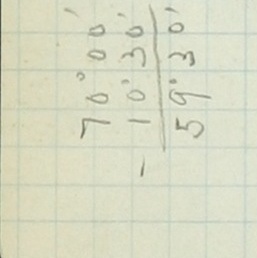 70° 00'
- 10° 30'
59° 30'